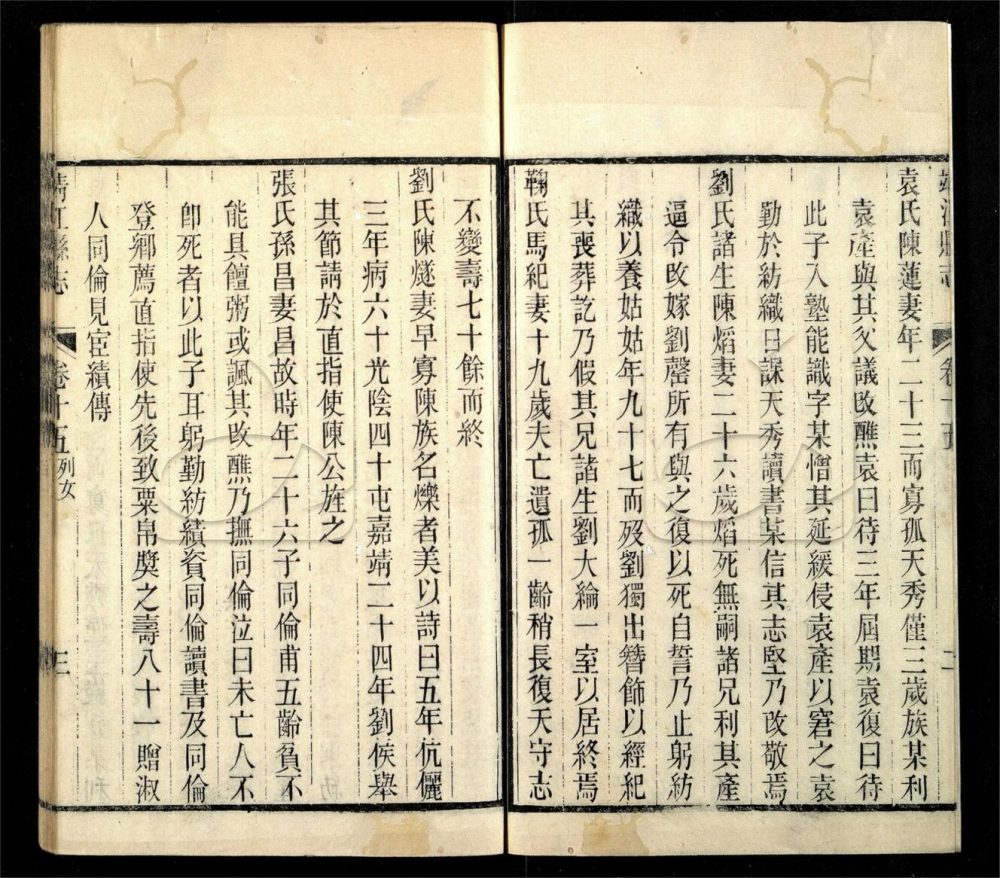 靖江縣志
卷十五
二
袁氏陳蓮妻年二十三而寡孤天秀僅三歲族某利
袁產與其父議改醮袁曰待三年屆期袁復曰待
此子入塾能識字某憎其延緩侵袁產以窘之袁
勤於紡織日課天秀讀書某信其志堅乃改敬焉
劉氏諸生陳熖妻二十六歲熖死無嗣諸兄利其產
逼令改嫁劉罄所有與之復以死自誓乃止躬紡
織以養姑姑年九十七而歿劉獨出簪飾以經紀
其喪葬訖乃假其兄諸生劉大綸一室以居終焉
鞠氏馬紀妻十九歲夫亡遺孤一齡稍長復夭守志
不變壽七十餘而終
劉氏陳燧妻早寡陳族名爍者美以詩曰五年伉儷
三年病六十光陰四十屯嘉靖二十四年劉侯舉
其節請於直指使陳公旌之
張氏孫昌妻昌故時年二十六子同倫甫五齡貧不
能具饘粥或諷其改醮乃撫同倫泣曰未亡人不
卽死者以此子耳躬勤紡績資同倫讀書及同倫
登鄉薦直指使先後致粟帛奬之壽八十一贈淑
人同倫見宦績傳
靖江縣志
卷十五列女
三